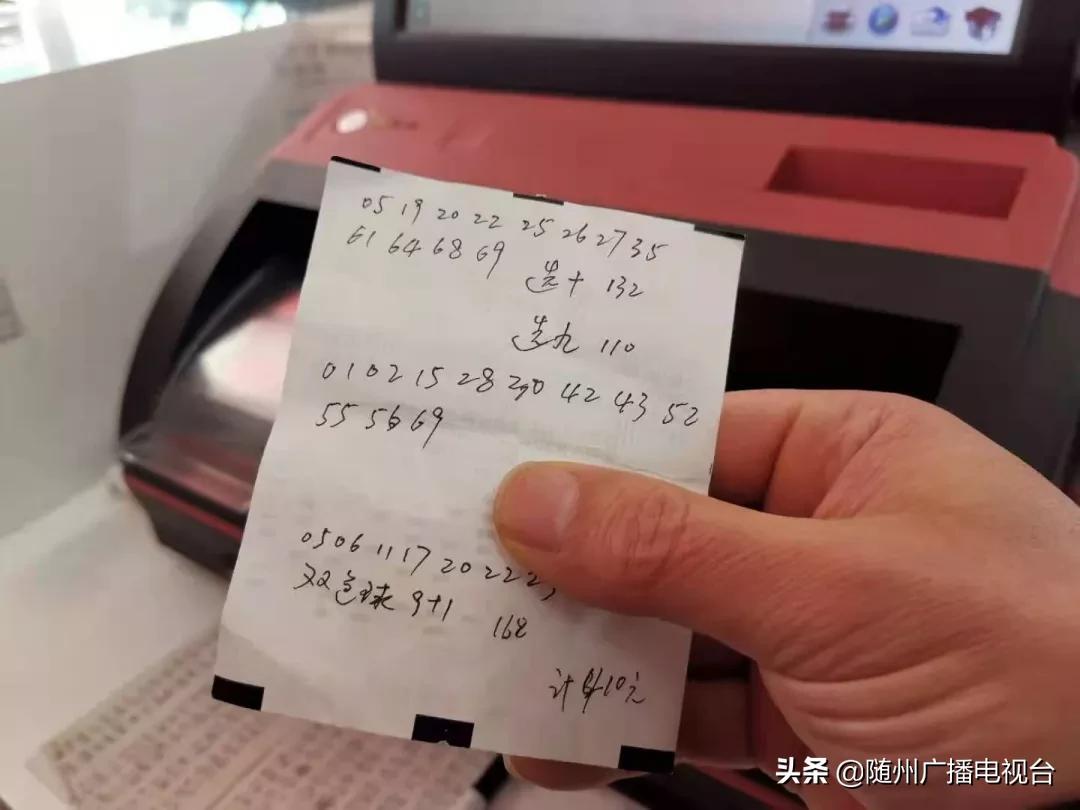 05 19 20 22 25 26 27 35
61 64 68 69 选十 132
选九 110
01 02 15 28 30 42 43 52
55 56 69
05 06 11 17 20 22
双色球 9+1
168
计410元
头条 @随州广播电视台